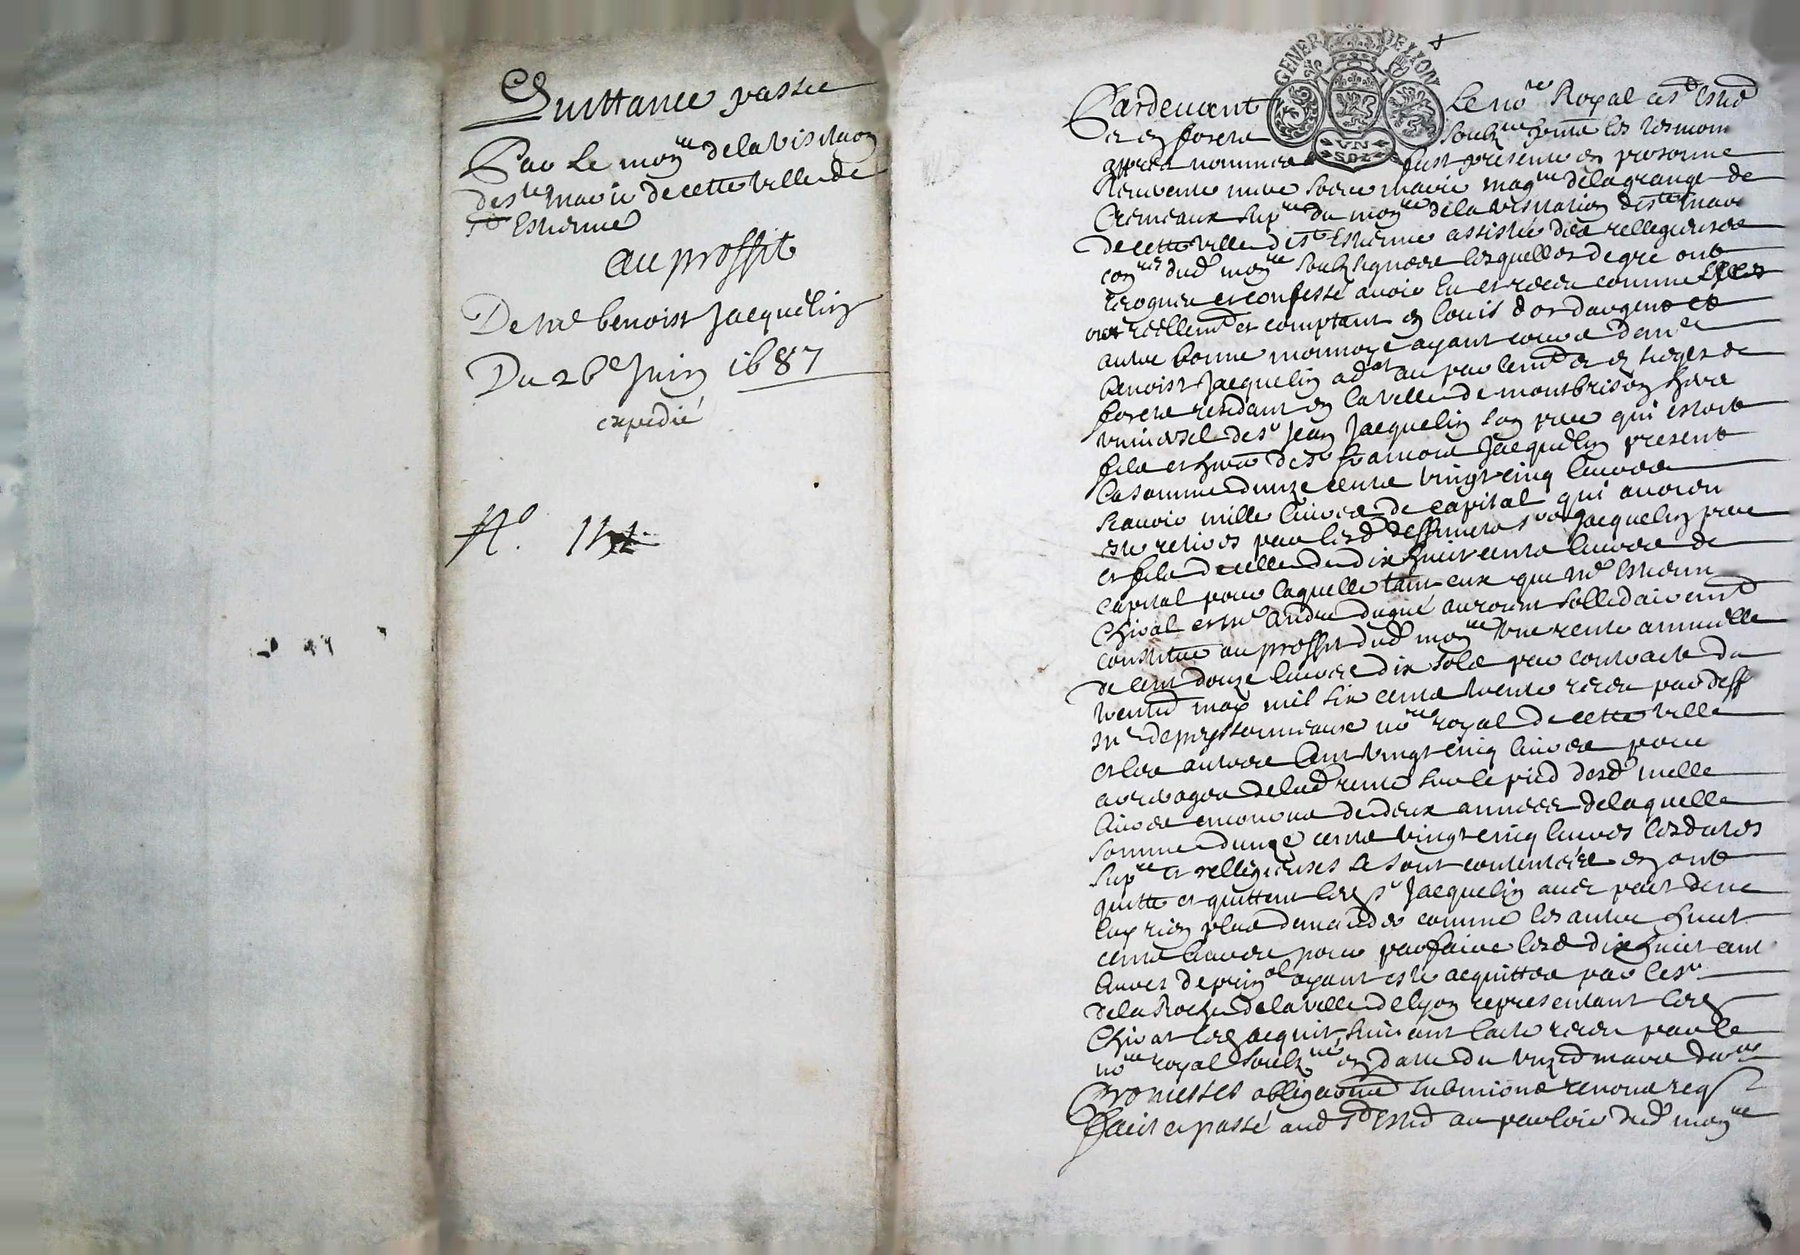 Quittance passée
Par le mon.re de la visitaōn
de s.te marie de cette ville de
s.t Estienne
au proffit
De m.e benoist Jacquelin
Du 26e Juin 1687
expedié
N.o
GENER DE LION
VN
SOL
Pardevant Le no.re Royal à s.t Estie
et en forest soubz.ne les tesmoins
apprès nommées fust presente en personne
Reverente mere soeur marie mag.ne delagrange de
Cremeaux sup.re du mon.re de la visitation de s.te marie
de cette ville de s.t Estienne assistée des relligieuses
con.res dud. mon.re soubz signées lesquelles de gré ont
recognu et confessé avoir eu et receu comme elles
ont reellem.t et comptant en louis d'or d'argent et
autre bonne monnoye ayant cours de m.e
benoist Jacquelin ad.at au parlem.t et en sieges de
forests residant en la ville de montbrison here
universel de s.r Jean Jacquelin son pere qui estoit
fils et here de s.r françois Jacquelin present
la somme d'unze cents vingt cinq livres
scavoir mille livres de capital qui avoien
esté retirés par lesd. deffuncts s.rs Jacquelin pere
et fils de celle de dix huit cents livres de
capital pour laquelle tant eux que m.e Estienne
Chival et m.e André dugué auroint sollidairement
constitué au proffit dud. mon.re une rente annuelle
de cent douze livres dix sols par contracte du
may mil six cents trente receu par deff
m.e no.re royal de cette ville
et les autres cent vingt cinq livres pour
arrerages de lad. rente sur le pied desd. mille
livres de deux années de laquelle
somme d'unze cents vingt cinq livres lesdittes
sup.re et relligieuses se sont contentées en ont
quitté et quittent led. s.r Jacquelin avec pact de ne
luy rien plus demander comme les autre huict
cents livres pour parfaire lesd. dix huict cent
livres de prin.al ayant esté acquittés par le s.r
de la Roche de la ville de lyon representant led.
Chival led. acquit suivant l'acte receu par le
no.re royal soubz.né en date du mars
Promesses obligaōns submions renons req.s
Faict et passé aud. s.t Estie au parloir dud. mon.re